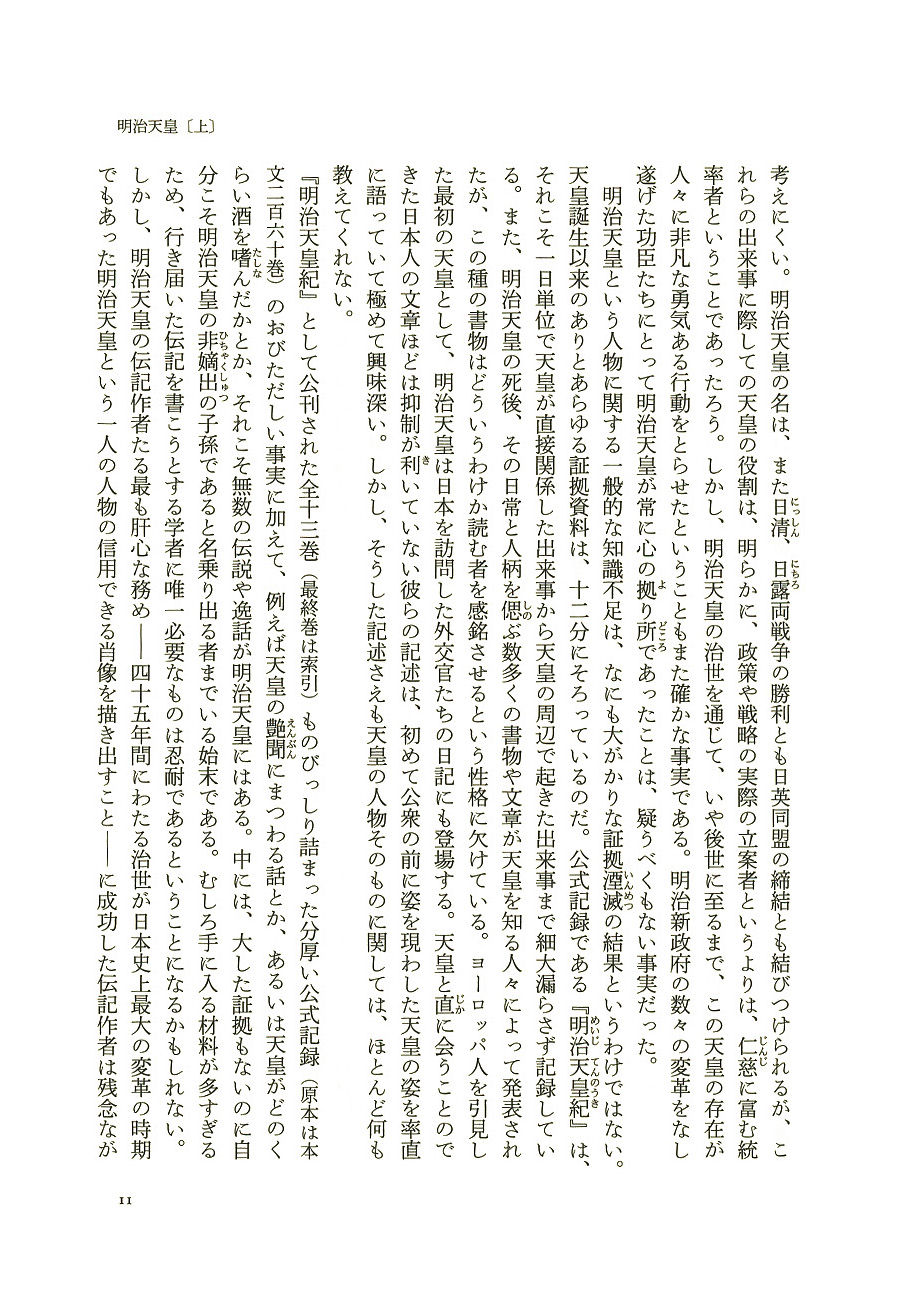 明治天皇〔上〕
考えにくい。明治天皇の名は、また日清、日露両戦争の勝利とも日英同盟の締結とも結びつけられるが、こ
れらの出来事に際しての天皇の役割は、明らかに、政策や戦略の実際の立案者というよりは、仁慈に富む統
率者ということであったろう。しかし、明治天皇の治世を通じて、いや後世に至るまで、この天皇の存在が
人々に非凡な勇気ある行動をとらせたということもまた確かな事実である。明治新政府の数々の変革をなし
遂げた功臣たちにとって明治天皇が常に心の拠り所であったことは、疑うべくもない事実だった。
明治天皇という人物に関する一般的な知識不足は、なにも大がかりな証拠湮滅の結果というわけではない。
天皇誕生以来のありとあらゆる証拠資料は、十二分にそろっているのだ。公式記録である『明治天皇紀』は、
それこそ一日単位で天皇が直接関係した出来事から天皇の周辺で起きた出来事まで細大漏らさず記録してい
る。また、明治天皇の死後、その日常と人柄を偲ぶ数多くの書物や文章が天皇を知る人々によって発表され
たが、この種の書物はどういうわけか読む者を感銘させるという性格に欠けている。ヨーロッパ人を引見し
た最初の天皇として、明治天皇は日本を訪問した外交官たちの日記にも登場する。天皇と直に会うことので
きた日本人の文章ほどは抑制が利いていない彼らの記述は、初めて公衆の前に姿を現わした天皇の姿を率直
に語っていて極めて興味深い。しかし、そうした記述さえも天皇の人物そのものに関しては、ほとんど何も
教えてくれない。
『明治天皇紀』として公刊された全十三巻（最終巻は索引）ものびっしり詰まった分厚い公式記録（原本は本
文二百六十巻）のおびただしい事実に加えて、例えば天皇の艶聞にまつわる話とか、あるいは天皇がどのく
らい酒を嗜んだかとか、それこそ無数の伝説や逸話が明治天皇にはある。中には、大した証拠もないのに自
分こそ明治天皇の非嫡出の子孫であると名乗り出る者までいる始末である。むしろ手に入る材料が多すぎる
ため、行き届いた伝記を書こうとする学者に唯一必要なものは忍耐であるということになるかもしれない。
しかし、明治天皇の伝記作者たる最も肝心な務め――四十五年間にわたる治世が日本史上最大の変革の時期
でもあった明治天皇という一人の人物の信用できる肖像を描き出すこと――に成功した伝記作者は残念なが
11